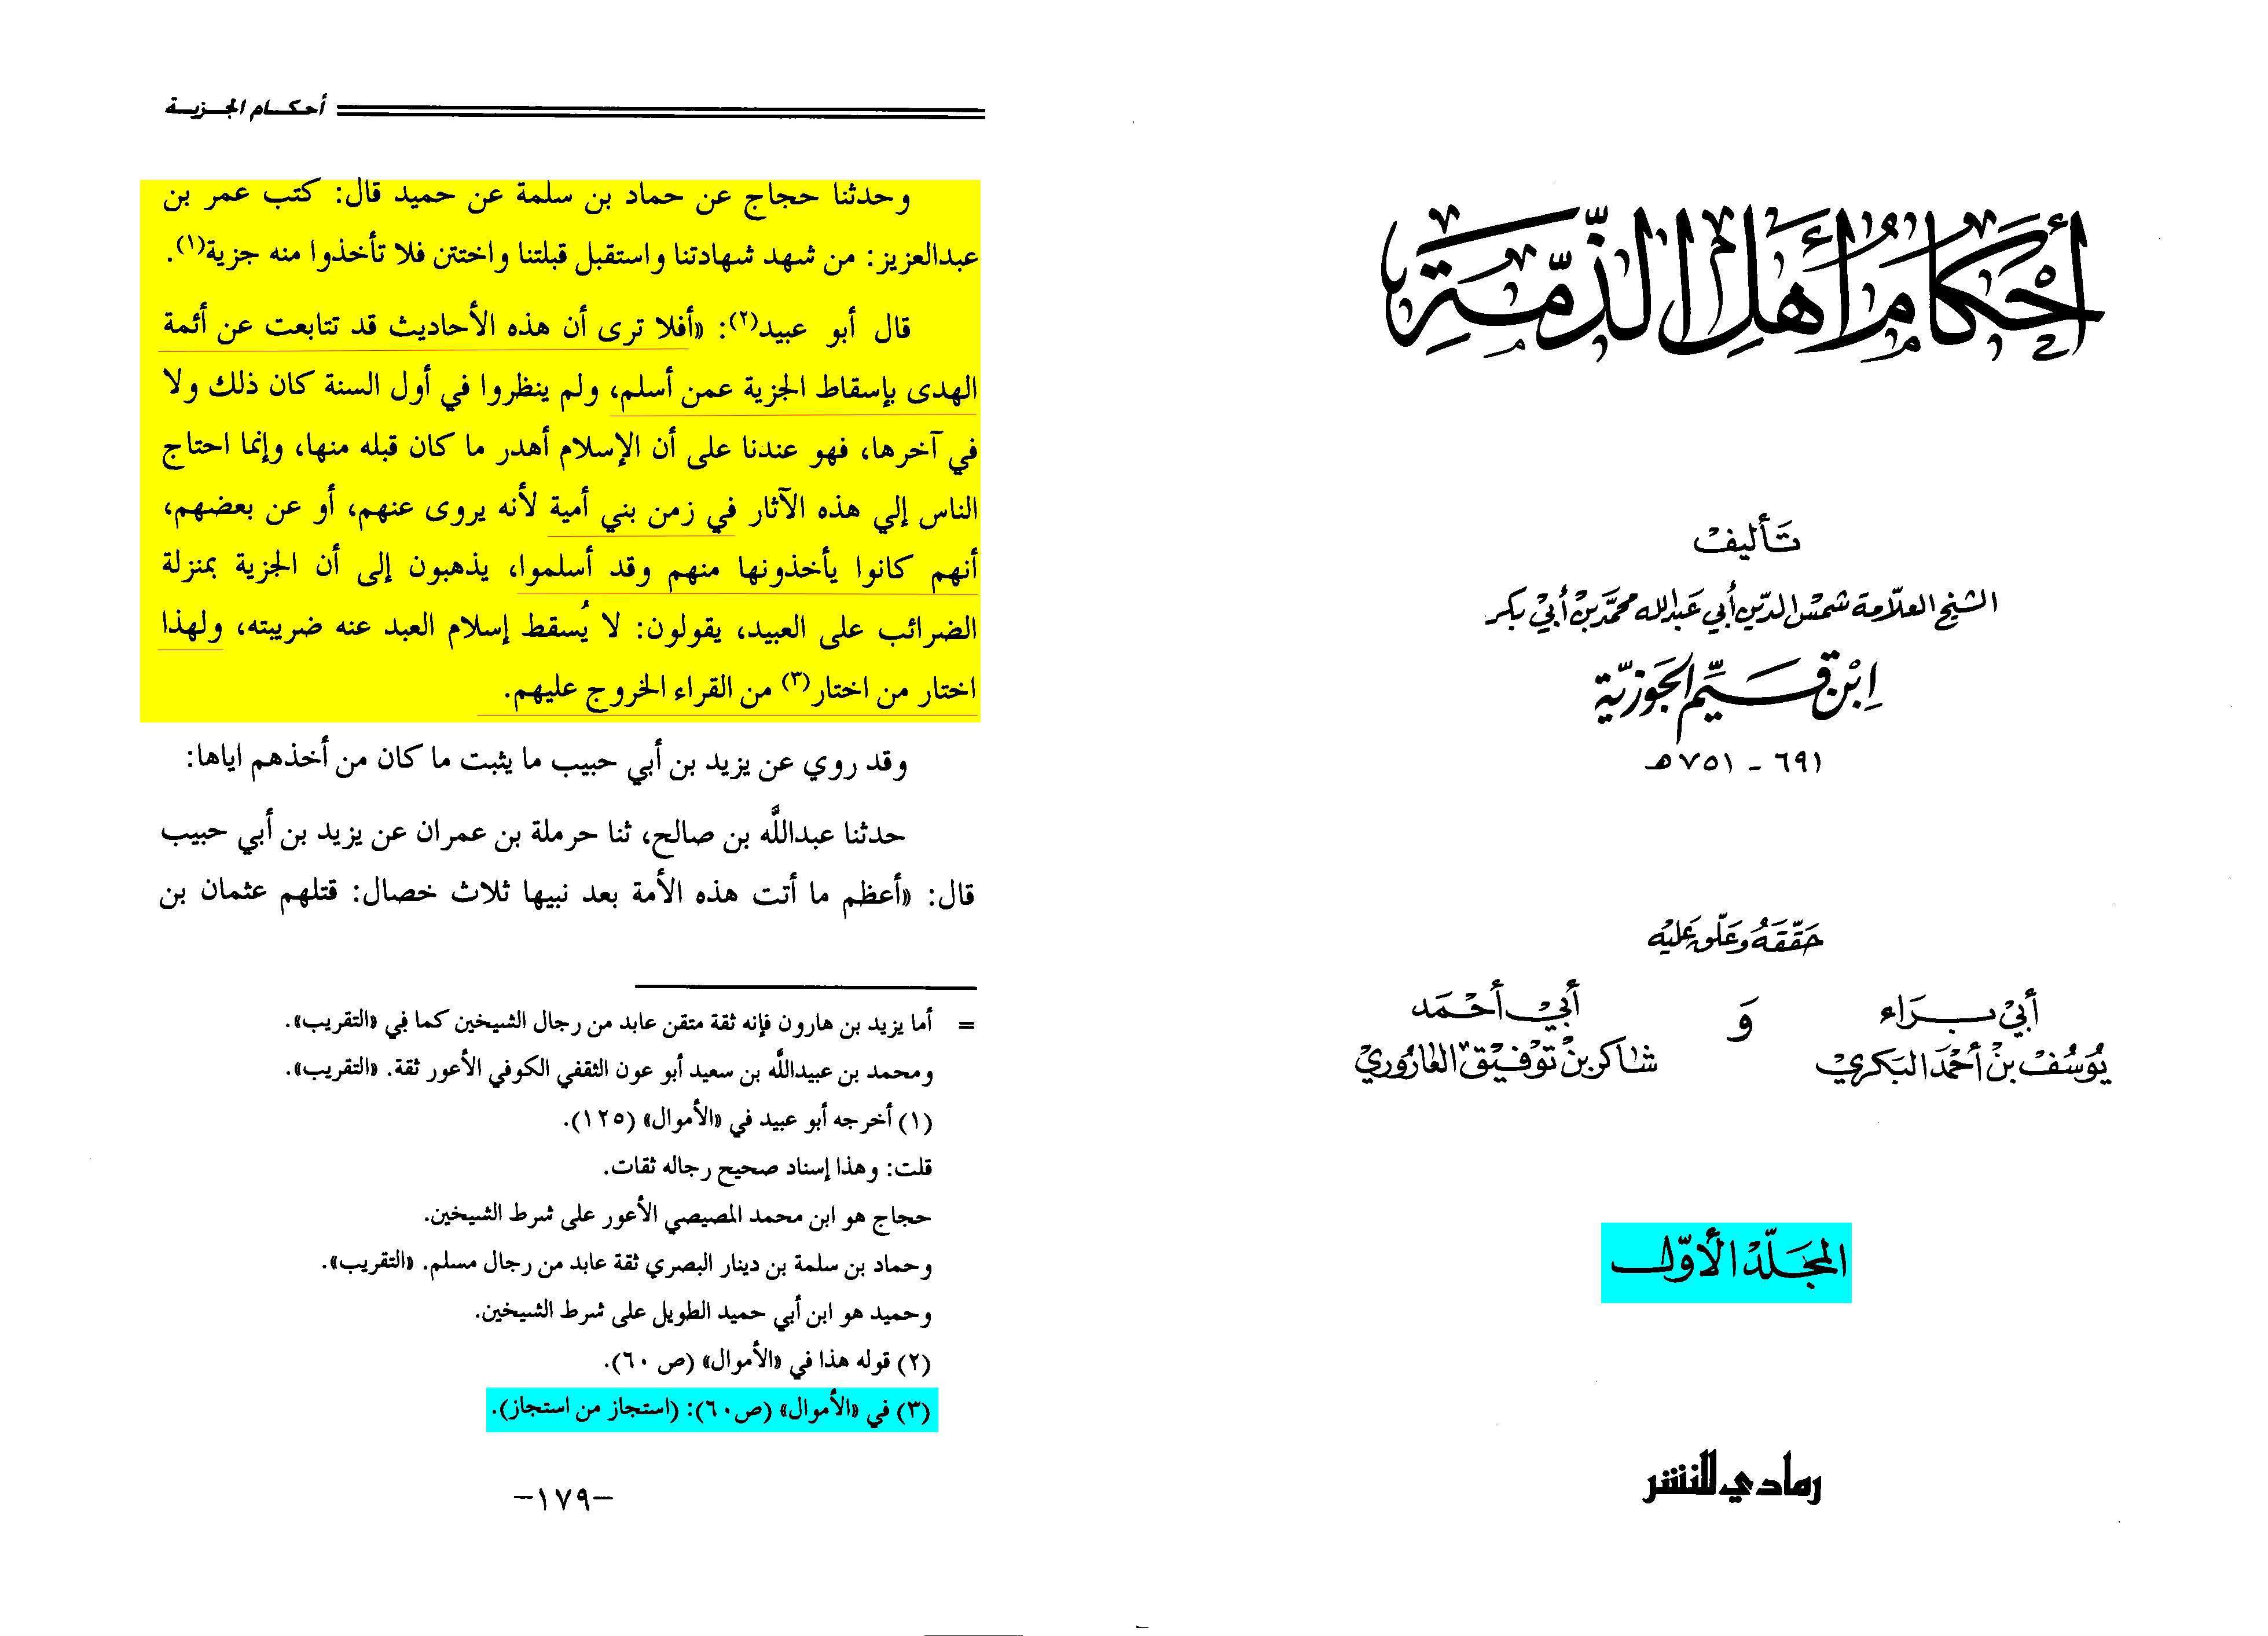 أحكام أهل الذمة
تأليف
الشيخ العلّامة شمس الدين أبي عبدالله محمد بن أبي بكر
ابن قيم الجوزية
٦٩١ - ٧٥١ هـ
حققه وعلق عليه
أبي براء
يوسف بن أحمد البكري
و
أبي أحمد
شاكر بن توفيق العاروري
المجلد الأول
رمادي للنشر
أحكام الجزية
وحدثنا حجاج عن حماد بن سلمة عن حميد قال: كتب عمر بن
عبدالعزيز: من شهد شهادتنا واستقبل قبلتنا واختتن فلا تأخذوا منه جزية(١).
قال أبو عبيد(٢): «أفلا ترى أن هذه الأحاديث قد تتابعت عن أئمة
الهدى بإسقاط الجزية عمن أسلم، ولم ينظروا في أول السنة كان ذلك ولا
في آخرها، فهو عندنا على أن الإسلام أهدر ما كان قبله منها، وإنما احتاج
الناس إلي هذه الآثار في زمن بني أمية لأنه يروى عنهم، أو عن بعضهم،
أنهم كانوا يأخذونها منهم وقد أسلموا، يذهبون إلى أن الجزية بمنزلة
الضرائب على العبيد، يقولون: لا يُسقط إسلام العبد عنه ضريبته، ولهذا
اختار من اختار(٣) من القراء الخروج عليهم.
وقد روي عن يزيد بن أبي حبيب ما يثبت ما كان من أخذهم اياها:
حدثنا عبداللَّه بن صالح، ثنا حرملة بن عمران عن يزيد بن أبي حبيب
قال: «أعظم ما أتت هذه الأمة بعد نبيها ثلاث خصال: قتلهم عثمان بن
= أما يزيد بن هارون فإنه ثقة متقن عابد من رجال الشيخين كما في «التقريب».
ومحمد بن عبيداللَّه بن سعيد أبو عون الثقفي الكوفي الأعور ثقة. «التقريب».
(١) أخرجه أبو عبيد في «الأموال» (١٢٥).
قلت: وهذا إسناد صحيح رجاله ثقات.
حجاج هو ابن محمد المصيصي الأعور على شرط الشيخين.
وحماد بن سلمة بن دينار البصري ثقة عابد من رجال مسلم. «التقريب».
وحميد هو ابن أبي حميد الطويل على شرط الشيخين.
(٢) قوله هذا في «الأموال» (ص ٦٠).
(٣) في «الأموال» (ص٦٠): (استجاز من استجاز).
-١٧٩-